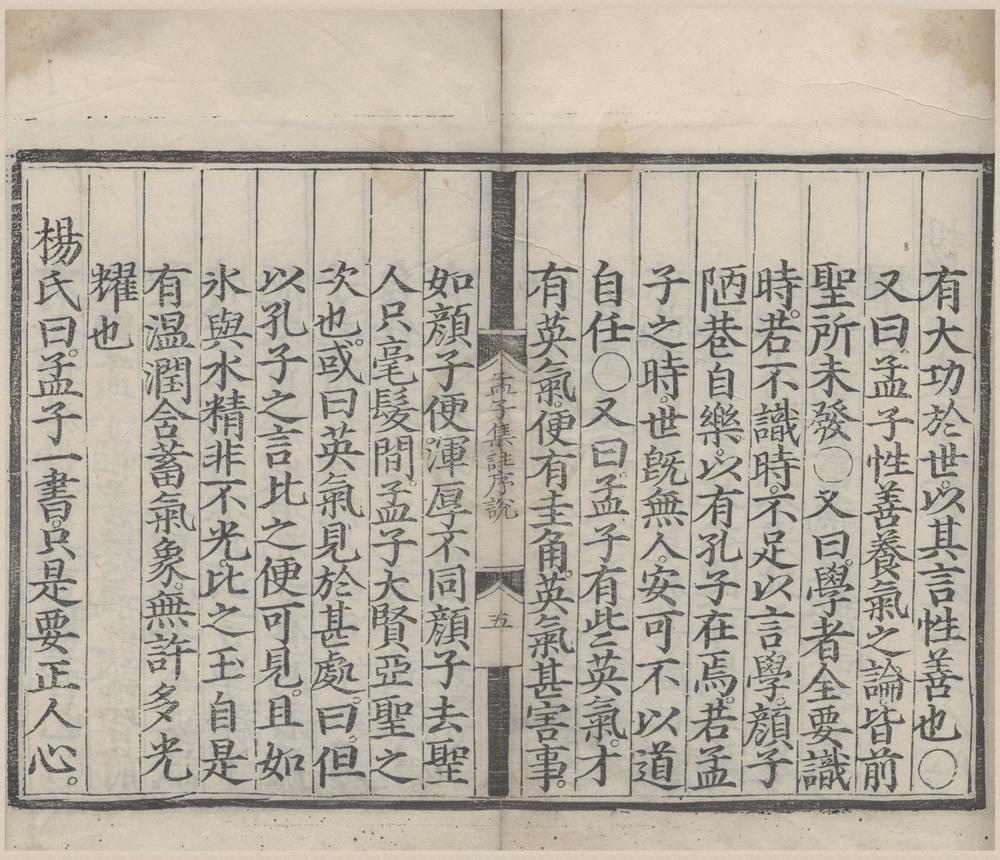 有大功於世。以其言性善也○
又曰。孟子性善養氣之論。皆前
聖所未發○又曰。學者全要識
時。若不識時。不足以言學。顏子
陋巷自樂。以有孔子在焉。若孟
子之時。世旣無人。安可不以道
自任○又曰。孟子有些英氣。才
有英氣。便有圭角。英氣甚害事。
孟子集註序說
五
如顏子便渾厚不同顏子去聖
人只毫髮間。孟子大賢亞聖之
次也。或曰英氣見於甚處。曰。但
以孔子之言比之便可見。且如
氷與水精非不光。比之玉自是
有溫潤含蓄氣象。無許多光
耀也
楊氏曰。孟子一書。只是要正人心。